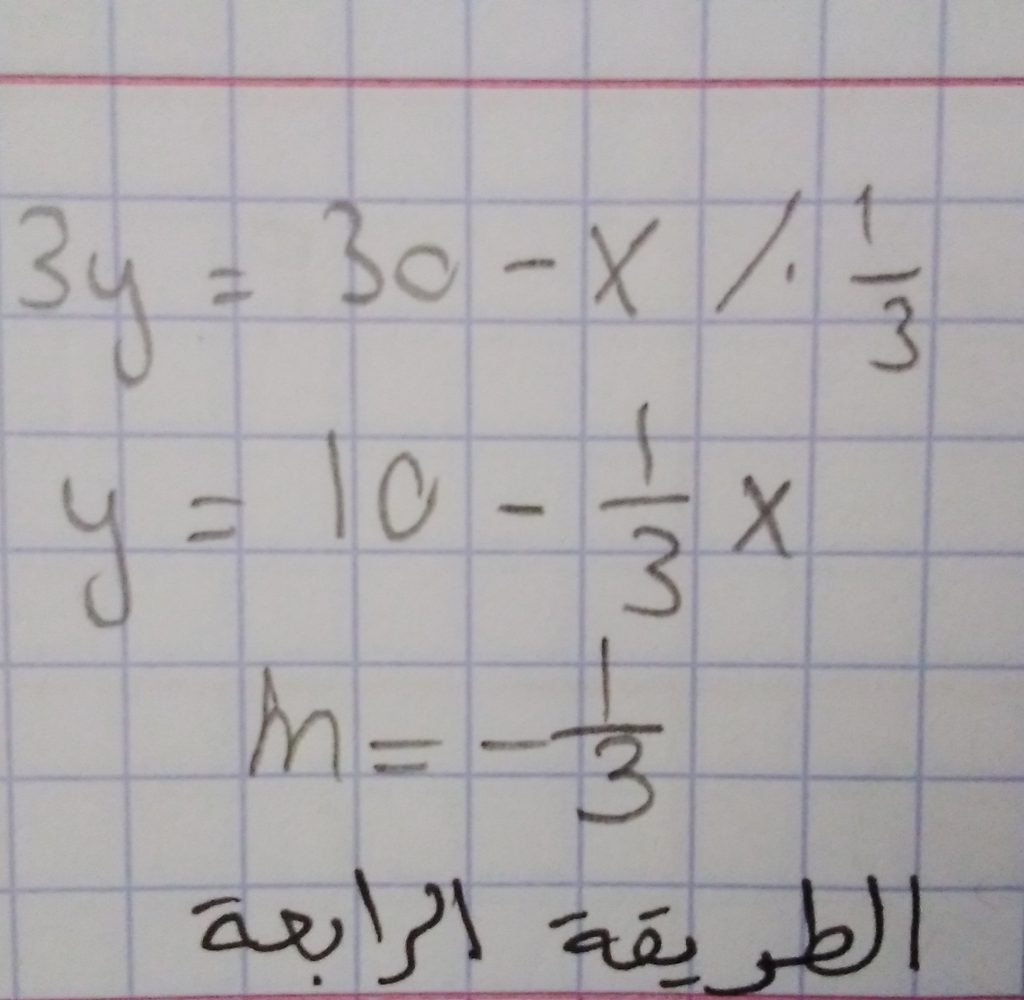 3y = 30 - x /. 1/3
y = 10 - 1/3 x
m = - 1/3
الطريقة الرابعة